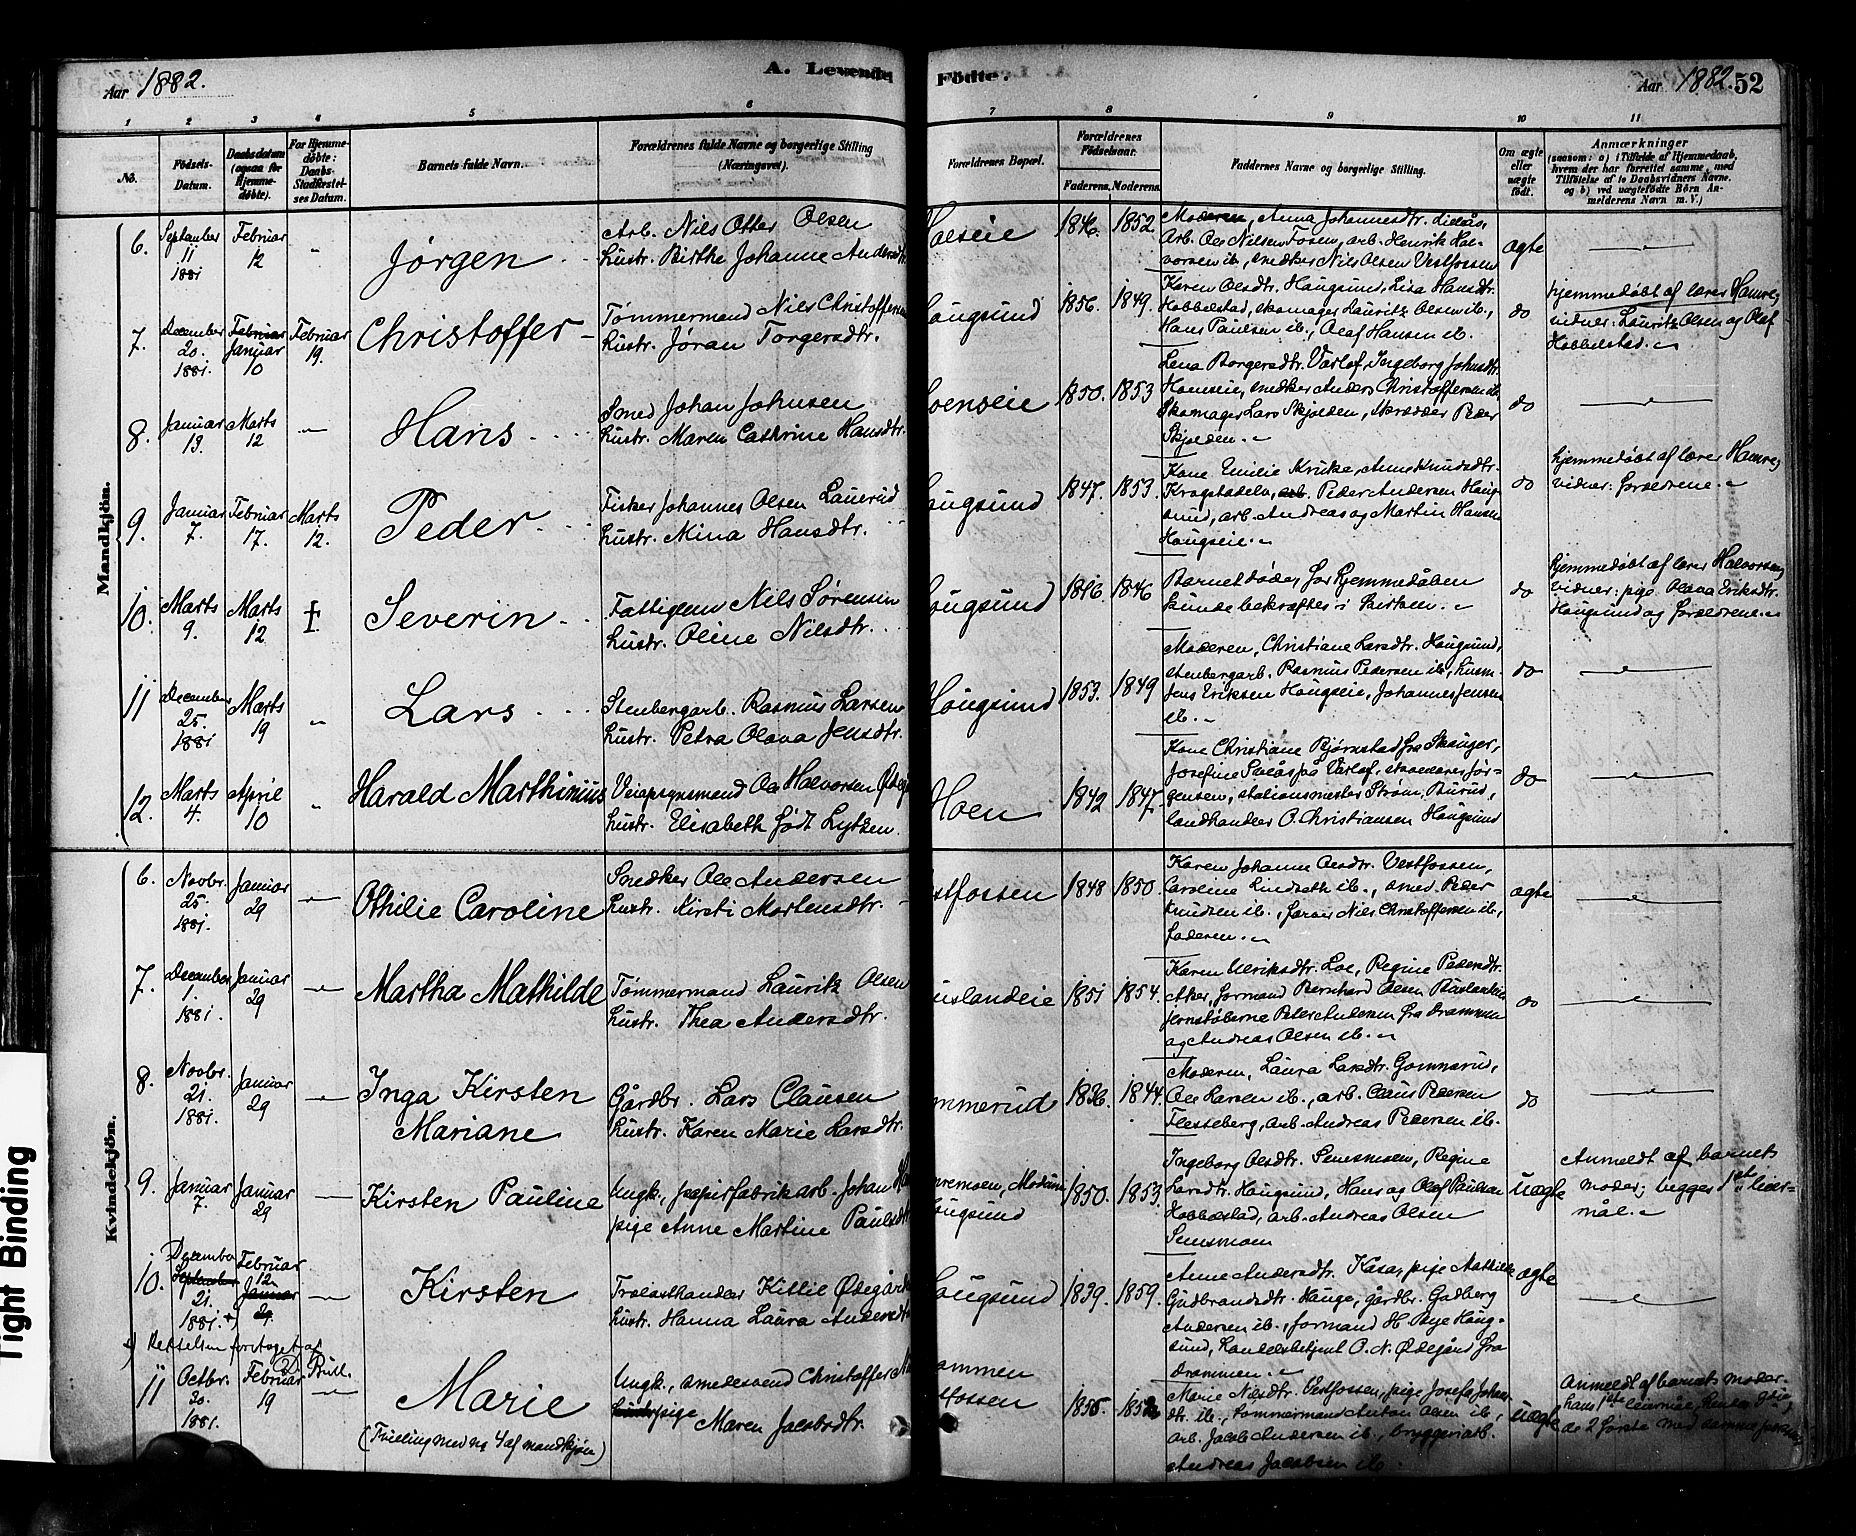 Aar 1882.
A. Levende
Födte.
Aar 1882. 52
1 2 3 4 5 6 7 8 9 10 11
No.
Födsels-Datum.
Daabsdatum (ogsaa for Hjemmedöbte).
For Hjemmedöbte: Daabs-Stadfæstelses Datum.
Barnets fulde Navn.
Forældrenes fulde Navne og borgerlige Stilling (Næringsvei).
Forældrenes Bopæl.
Forældrenes Födselsaar.
Faderens. Moderens.
Faddernes Navne og borgerlige Stilling.
Om ægte eller uægte födt.
Anmærkninger
(saasom: a) i Tilfælde af Hjemmedaab, hvem der har forrettet samme, med Tilföielse af to Daabsvidners Navne, og b) ved uægtefödte Börn Anmelderens Navn m. V.)
Mandkjön.
6. September 11 1881 Februar 12 "
Jørgen
Arb. Nils Otter Olsen
hustr. Birthe Johanne Andersdtr
1846. 1852
Moderen, Anna Johannesdtr.
Arb. Ole Nilsen Fosen, arb. Henrik Halvorsen ib., snedker Nils Olsen Vestfossen
ægte
7. December 20. 1881. Februar Januar 10 Februar 19.
Christoffer
Tømmermand Nils Christoffersen
hustr. Jøran Torgersdtr.
ougsund 1856. 1849.
Karen Olsdtr. Hougsund, Lisa Hansdtr.
Hobbelstad, skomager Lauritz Olsen ib.,
Hans Paulsen ib., Olaf Hansen ib.
do
hjemmedøbt af lærer Hamre,
vidner: Lauritz Olsen og Olaf
Hobbelstad.
8. Januar 13. Marts 12
Hans
Smed Johan Johnsen
hustr. Maren Cathrine Hansdtr.
oenseie 1850. 1853
Lena Borgersdtr. Varlo, Ingeborg Johnsdtr.
Hoenseie, snedker Anders Christoffersen ib.
Skomager Lars Skjolden, Skrædder Peder
Skjolden.
do
9. Januar 7. Februar 17. Marts 12.
Peder
Fisker Johannes Olsen Lauerud
hustr. Mina Hansdtr.
ougsund 1847. 1853.
Kone Emilie Kruke, Anne Knudsdtr.
Krogstadelv, arb. Peder Andersen Hougsund, arb. Andreas og Martin Hansen
Hougseie.
do
hjemmedøbt af lærer Hamre,
vidner: forældrene.
10. Marts 9. Marts 12 ‡
Severin
Fattiglem Nils Sørensen
hustr. Oline Nilsdtr.
ougsund 1816. 1846
Barnet døde, før hjemmedåben
kunde bekræftes i kirken.
do
hjemmedøbt af lærer Halvorsen,
vidner: pige Olava Eriksdtr.
Hougsund og forældrene.
11 December 25. 1881 Marts 19 "
Lars
Stenbergarb. Rasmus Larsen
hustr. Petra Olava Jensdtr.
Hougsund 1853. 1849
Moderen, Christiane Larsdtr. Hougsund,
stenbergarb. Rasmus Pedersen ib., husm.
Jens Eriksen Hougseie, Johannes Jensen
ib.
do
12. Marts 4. April 10 "
Harald Marthinius
Halvorsen
hustr. Elisabeth født Lytzen.
Hoen 1842 1847.
Kone Christiane Bjørnstad fra Skouger,
Josefine på Varlo, Jørgensen, stationsmester Strøm, Burud,
landhandler O. Christiansen Hougsund
do
Kvindekjön.
6. Novbr. 25. 1881. Januar 29
Othilie Caroline
Snedker Ole Andersen
hustr. Kirsti Mortensdtr.
stfossen 1848 1850.
Karen Johanne Olsdtr. Vestfossen,
Caroline Lindseth ib., smed Peder
Knudsen ib., farver Nils Christoffersen ib.,
faderen.
ægte
7. December 1. 1881. Januar 29
Martha Mathilde
Tømmermand Lauritz Olsen
hustr. Thea Andersdtr.
uslandeie 1851 1854.
Karen Ulriksdtr. Loe, Regine Pedersdtr.
Aker, formand Bernhard Olsen
jernstøberne Peter Andersen fra Drammen
og Andreas Olsen ib.
do
8. Novbr. 21. 1881. Januar 29
Inga Kirsten
Mariane
Gårdbr. Lars Clausen
hustr. Karen Marie Larsdtr.
mmerud 1836. 1844.
Moderen, Laura Larsdtr. Gommerud,
Ole Larsen ib., arb. Claus Pedersen
Flesseberg, arb. Andreas Pedersen ib.
do
9. Januar 7. Januar 29
Kirsten Pauline
Ungk., papirfabrikarb. Johan
pige Anne Martine Paulsdt
remoen, Modum
ougsund 1850. 1853.
Ingeborg Olsdtr. Semsmoen, Regine
Larsdtr. Hougsund, Hans og Olaf Paulsen
Hobbelstad, arb. Andreas Olsen
Semsmoen
uægte
Anmeldt af barnets
moder; begges 1ste leiermål.
10. December September 21. 1881. + Februar 12 Januar 29
Kirsten
Trælasthandler Kittil Ødegård
hustr. Hanna Laura Andersdtr
ougsund 1839. 1859.
Anne Andersdtr. Kasa, pige Mathilde
Gudbrandsdtr. Hauge, gårdbr. Gudberg
Andersen ib., formand H. Bye Hougsund, handelsbetjent O. N. Ødegård fra
Drammen.
ægte
+) Rettelsen foretaget af Bull.
11 Octbr. 30. 1881. Februar 19
Marie
(Trilling med no 4 af mandkjøn)
Ungk., smedesvend Christoffer
hustr. pige Maren Jacobsdtr.
ammen
fossen 1855. 1852
Marie Nilsdtr. Vestfossen, pige Josefa Johansdtr. ib., tømmermand Anton Olsen ib.,
arb. Jacob Andersen ib., bryggeriarb.
Andreas Jacobsen ib.
uægte
Anmeldt af barnets moder.
hans 1ste leiermål, hendes 3die,
de 2 første med samme
Tight Binding